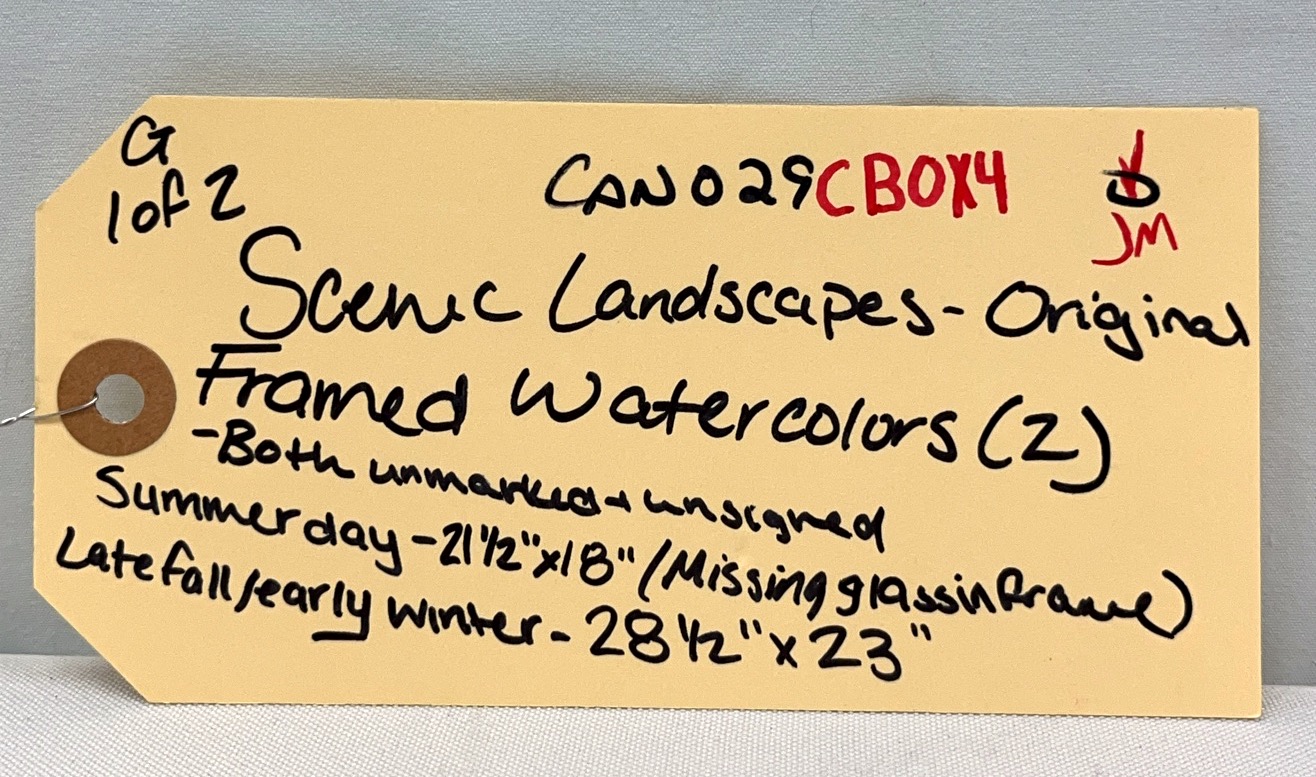 G
1 of 2
CAN029CBOX4
JM
Scenic Landscapes - Original
Framed Watercolors (2)
- Both unmarked + unsigned
Summer day - 21 1/2" x 18" (Missing glass in frame)
Late fall/early winter - 28 1/2" x 23"